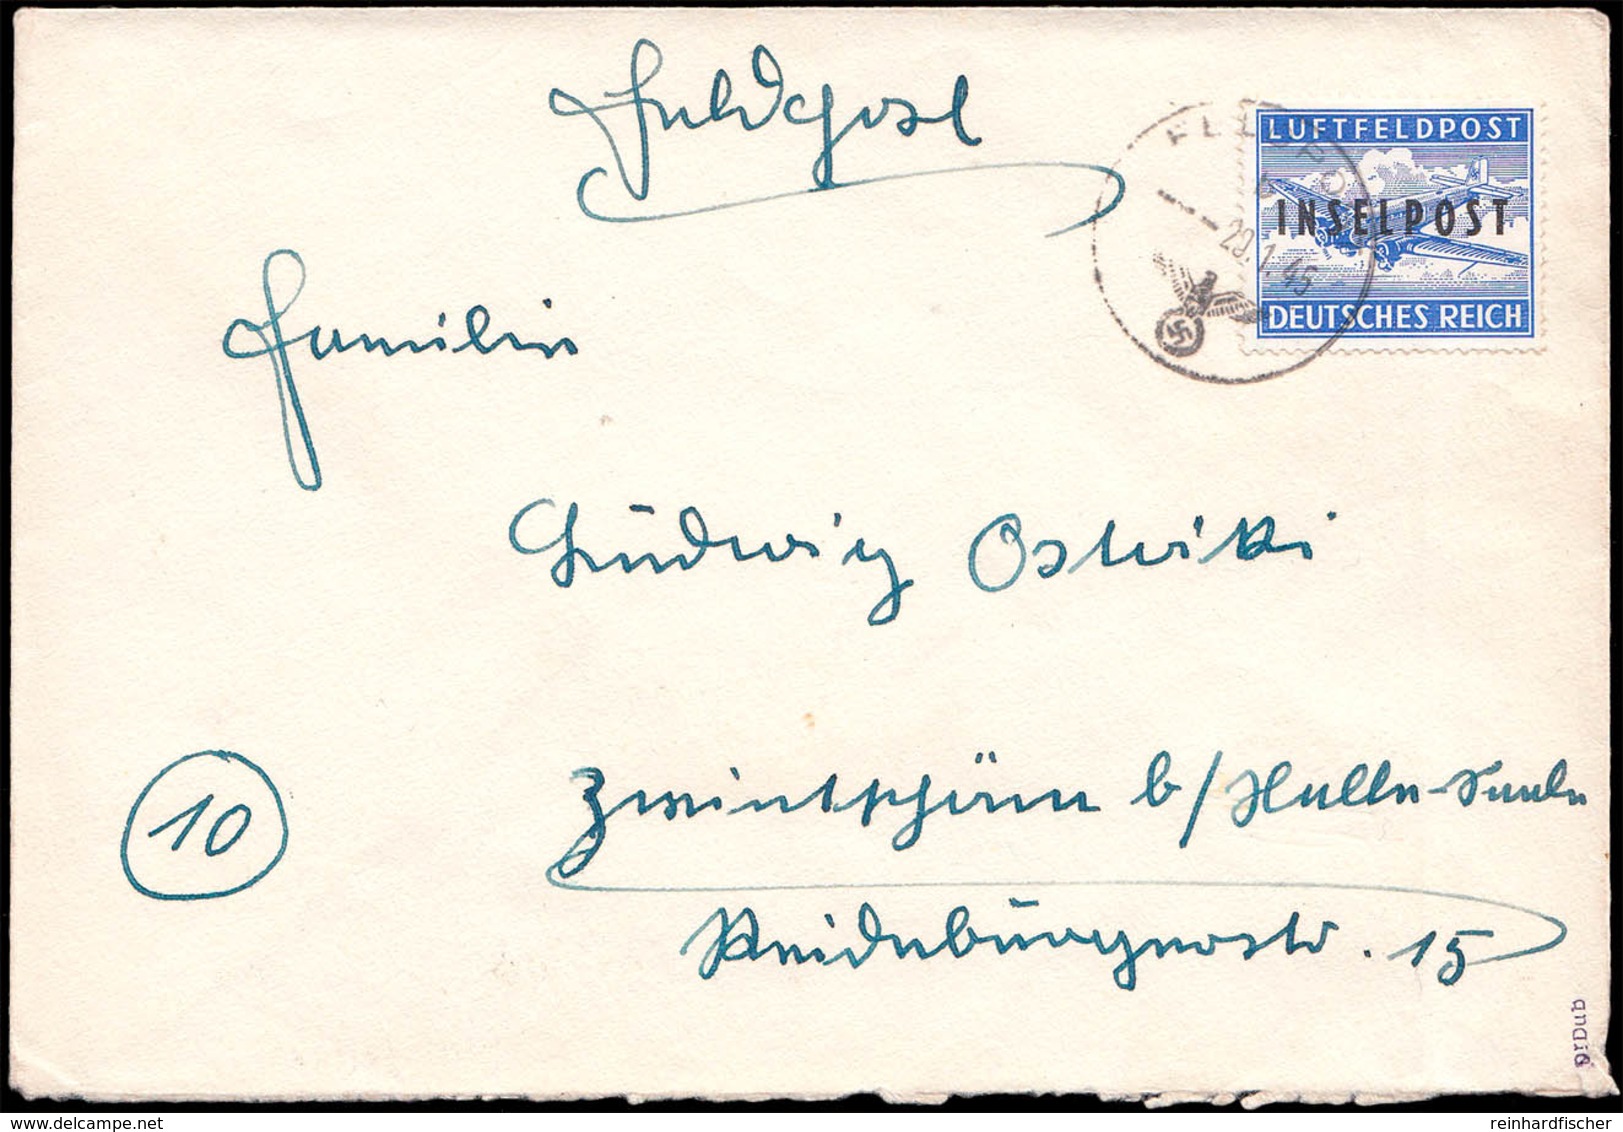 Feldpost
LUFTFELDPOST
INSELPOST
DEUTSCHES REICH
FELDPOST
29.1.45
Familie
Ludwig
10
Zwintschöna b/Halle-Saale
Reideburgerstr. 15
delcampe.net
reinhardfischer